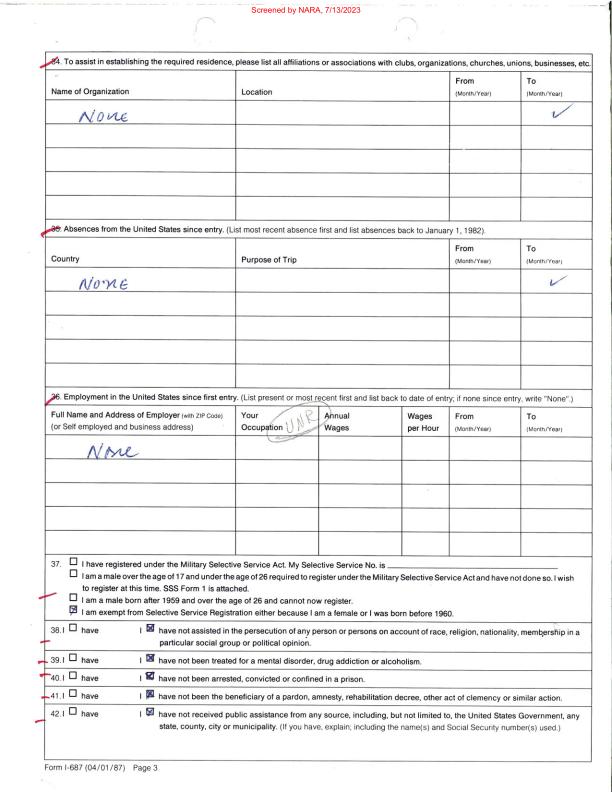 Screened by NARA, 7/13/2023
34. To assist in establishing the required residence, please list all affiliations or associations with clubs, organizations, churches, unions, businesses, etc.
Name of Organization Location From (Month/Year) To (Month/Year)
None ✓
35. Absences from the United States since entry. (List most recent absence first and list absences back to January 1, 1982).
Country Purpose of Trip From (Month/Year) To (Month/Year)
None ✓
36. Employment in the United States since first entry. (List present or most recent first and list back to date of entry; if none since entry, write "None".)
Full Name and Address of Employer (with ZIP Code) Your Annual Wages From To
(or Self employed and business address) Occupation UNR Wages per Hour (Month/Year) (Month/Year)
None
37. ☐ I have registered under the Military Selective Service Act. My Selective Service No. is
☐ I am a male over the age of 17 and under the age of 26 required to register under the Military Selective Service Act and have not done so. I wish
to register at this time. SSS Form 1 is attached.
☐ I am a male born after 1959 and over the age of 26 and cannot now register.
☒ I am exempt from Selective Service Registration either because I am a female or I was born before 1960.
38. I ☐ have I ☒ have not assisted in the persecution of any person or persons on account of race, religion, nationality, membership in a
particular social group or political opinion.
39. I ☐ have I ☒ have not been treated for a mental disorder, drug addiction or alcoholism.
40. I ☐ have I ☒ have not been arrested, convicted or confined in a prison.
41. I ☐ have I ☒ have not been the beneficiary of a pardon, amnesty, rehabilitation decree, other act of clemency or similar action.
42. I ☐ have I ☒ have not received public assistance from any source, including, but not limited to, the United States Government, any
state, county, city or municipality. (If you have, explain; including the name(s) and Social Security number(s) used.)
Form I-687 (04/01/87) Page 3